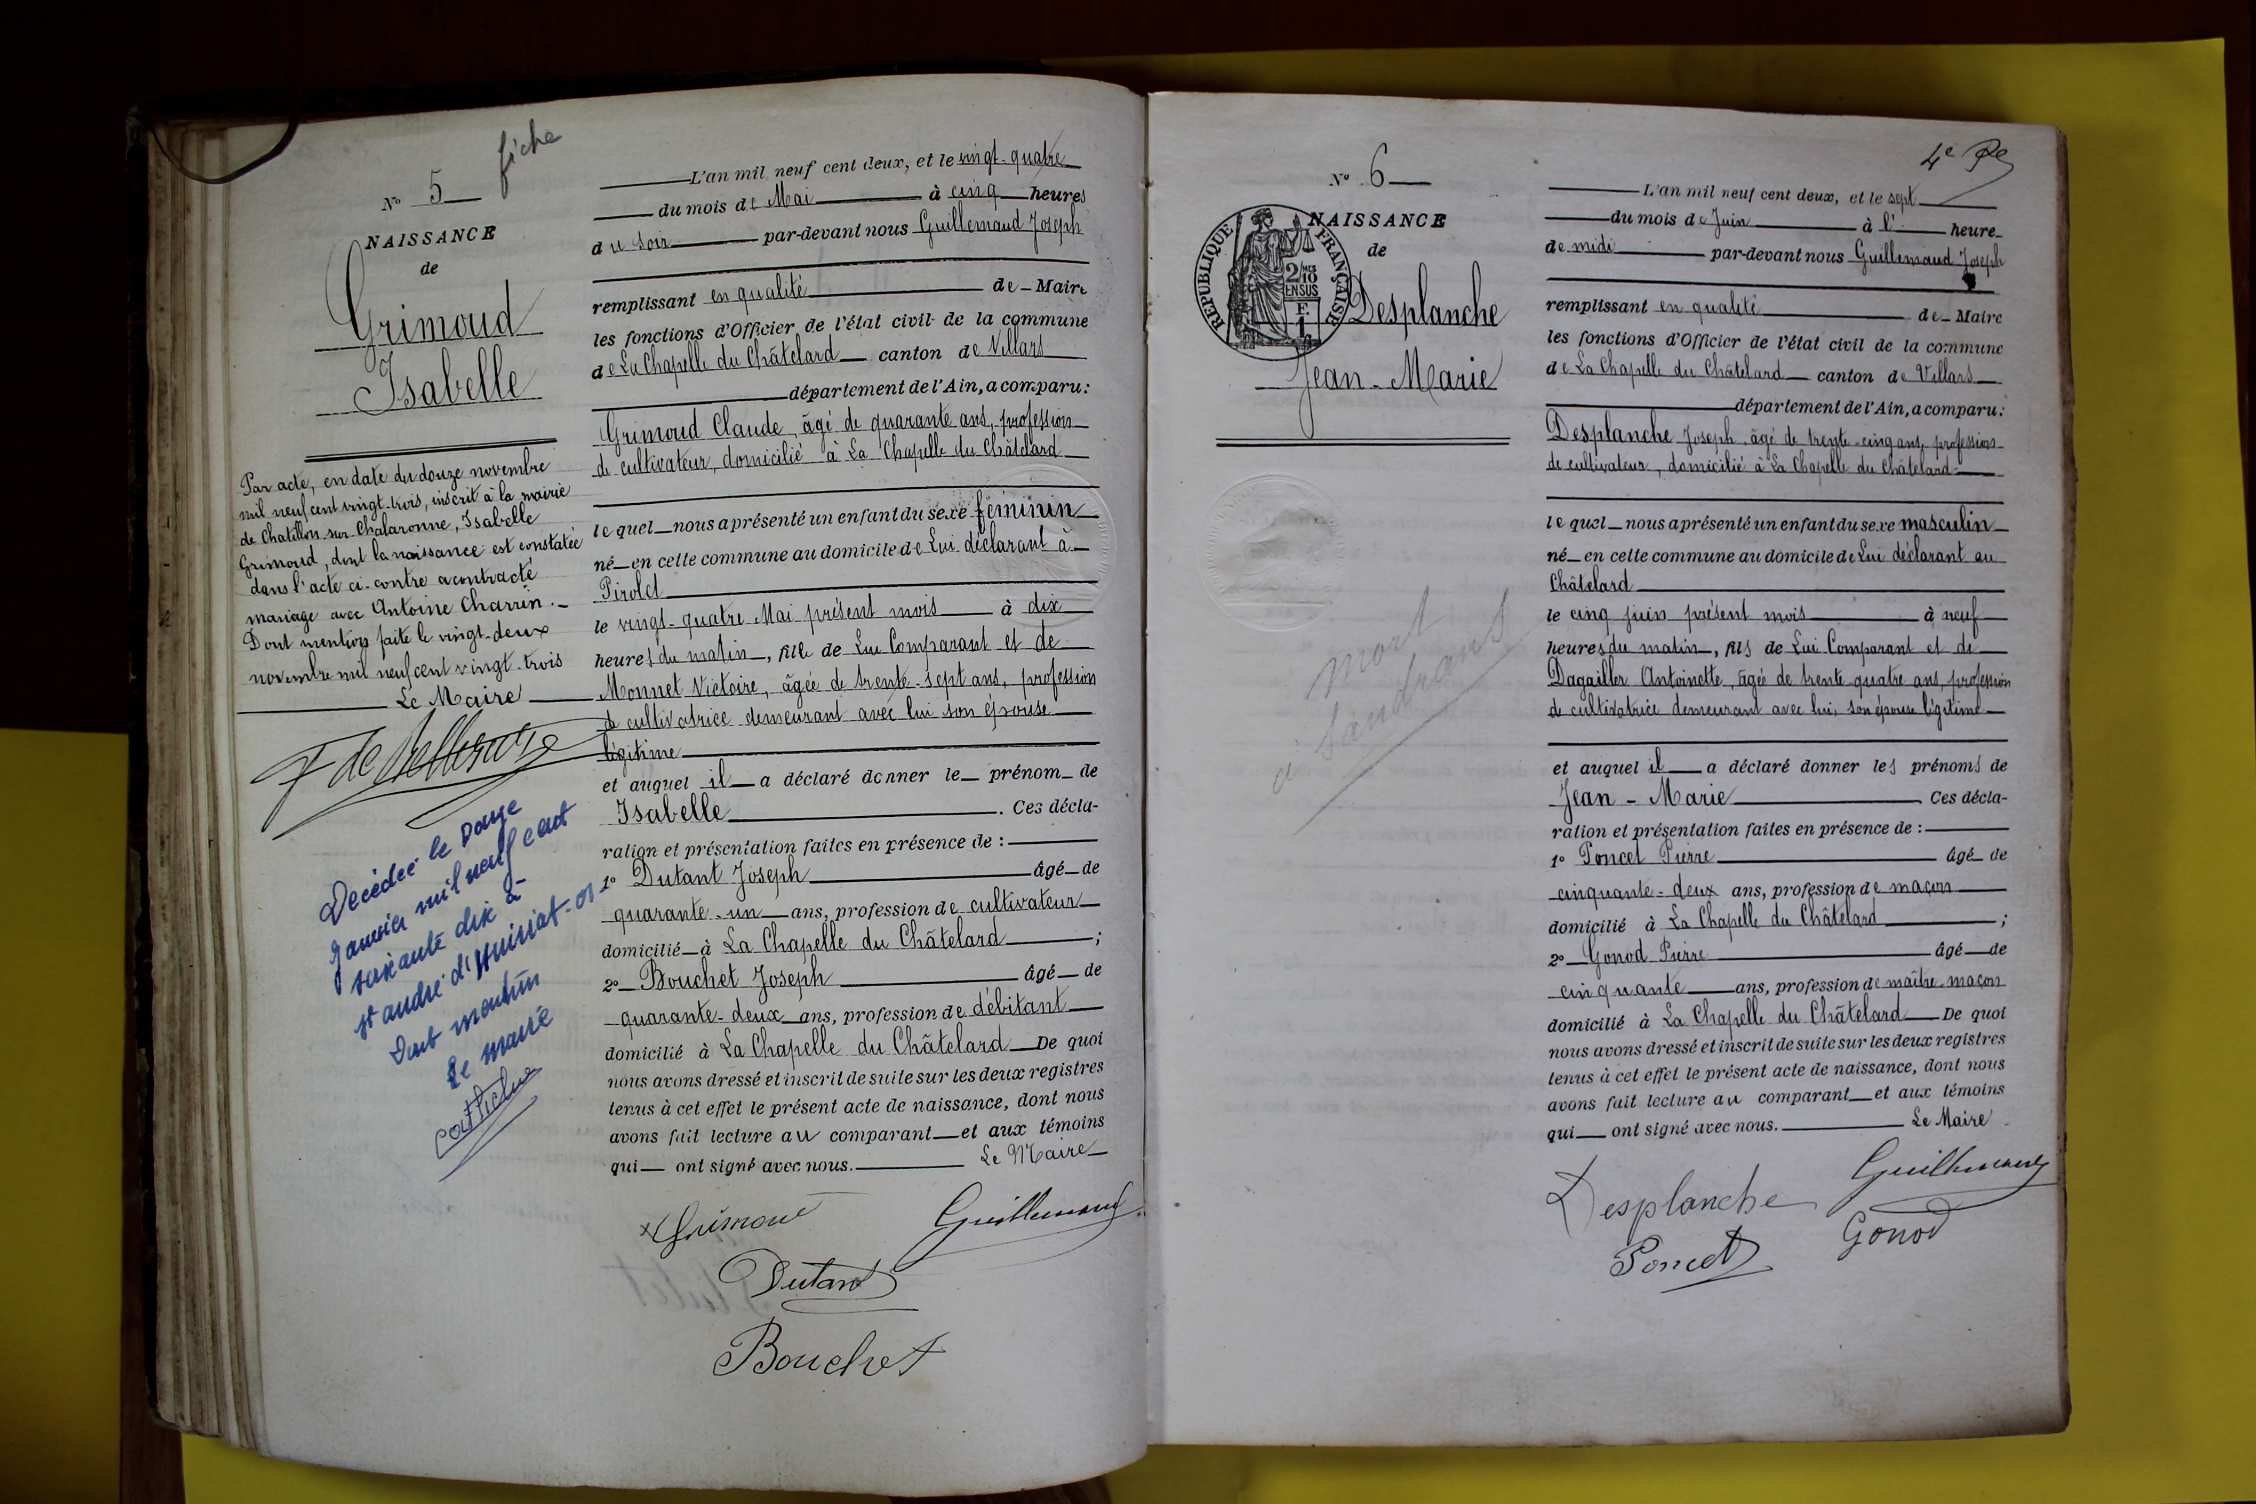 fiche
N° 5
NAISSANCE
de
Grimoud
Isabelle
Par acte, en date du douze novembre
mil neuf cent vingt-trois, inscrit à la mairie
de Chatillon-sur-Chalaronne, Isabelle
Grimoud, dont la naissance est constatée
dans l'acte ci-contre a contracté
mariage avec Antoine Charrin._
Dont mention faite le vingt-deux
novembre mil neuf cent vingt-trois
Le Maire
Décédée le Douze
Janvier mil neuf cent
soixante dix à
St andré d'Huiriat-01
Dont mention
Le maire
L'an mil neuf cent deux, et le vingt-quatre
du mois de Mai à cinq heures
du soir par-devant nous Guillemaud Joseph
remplissant en qualité de Maire
les fonctions d'Officier de l'état civil de la commune
de La Chapelle du Châtelard canton de Villars
département de l'Ain, a comparu:
Grimoud Claude, âgé de quarante ans, profession
de cultivateur, domicilié à La Chapelle du Châtelard
lequel nous a présenté un enfant du sexe féminin
né en cette commune au domicile de Lui déclarant à
Pirolet
le vingt-quatre Mai présent mois à dix
heures du matin, fille de Lui Comparant et de
Monnet Victoire, âgée de trente-sept ans, profession
de cultivatrice demeurant avec lui son épouse
légitime
et auquel il a déclaré donner le prénom de
Isabelle. Ces décla-
ration et présentation faites en présence de :
1° Dutant Joseph âgé de
quarante-un ans, profession de cultivateur
domicilié à La Chapelle du Châtelard ;
2° Bouchet Joseph âgé de
quarante-deux ans, profession de débitant
domicilié à La Chapelle du Châtelard De quoi
nous avons dressé et inscrit de suite sur les deux registres
tenus à cet effet le présent acte de naissance, dont nous
avons fait lecture au comparant et aux témoins
qui ont signé avec nous. Le Maire
Grimoud Guillemaud
Dutant
Bouchet
4e
N° 6
NAISSANCE
de
RÉPUBLIQUE FRANÇAISE
2/10
EN SUS
Desplanche
Jean-Marie
mort
à Sandrans
L'an mil neuf cent deux, et le sept
du mois de Juin à l' heure
de midi par-devant nous Guillemaud Joseph
remplissant en qualité de Maire
les fonctions d'Officier de l'état civil de la commune
de La Chapelle du Châtelard canton de Villars
département de l'Ain, a comparu:
Desplanche Joseph, âgé de trente-cinq ans, profession
de cultivateur, domicilié à La Chapelle du Châtelard
lequel nous a présenté un enfant du sexe masculin
né en cette commune au domicile de Lui déclarant au
Châtelard
le cinq juin présent mois à neuf
heures du matin, fils de Lui Comparant et de
Dagailler Antoinette, âgée de trente-quatre ans, profession
de cultivatrice demeurant avec lui, son épouse légitime
et auquel il a déclaré donner les prénoms de
Jean-Marie Ces décla-
ration et présentation faites en présence de :
1° Poncet Pierre âgé de
cinquante-deux ans, profession de maçon
domicilié à La Chapelle du Châtelard ;
2° Gonod Pierre âgé de
cinquante ans, profession de maître-maçon
domicilié à La Chapelle du Châtelard De quoi
nous avons dressé et inscrit de suite sur les deux registres
tenus à cet effet le présent acte de naissance, dont nous
avons fait lecture au comparant et aux témoins
qui ont signé avec nous. Le Maire
Desplanche Guillemaud
Poncet Gonod